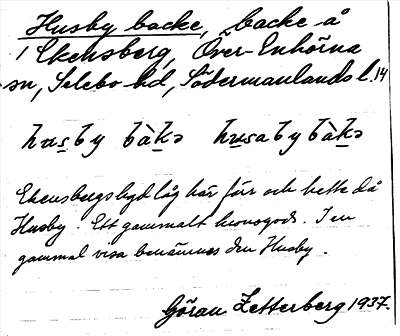 Husby backe, backe å
1 Ekensberg, Över-Enhörna
sn, Selebo hd, Södermanlands l. 14
husby bàkə husaby bàkə
Ekensbergs bgd låg här förr och hette då
Husby. Ett gammalt kronogods. I en
gammal visa benämnes den Husby.
Göran Zetterberg 1937.